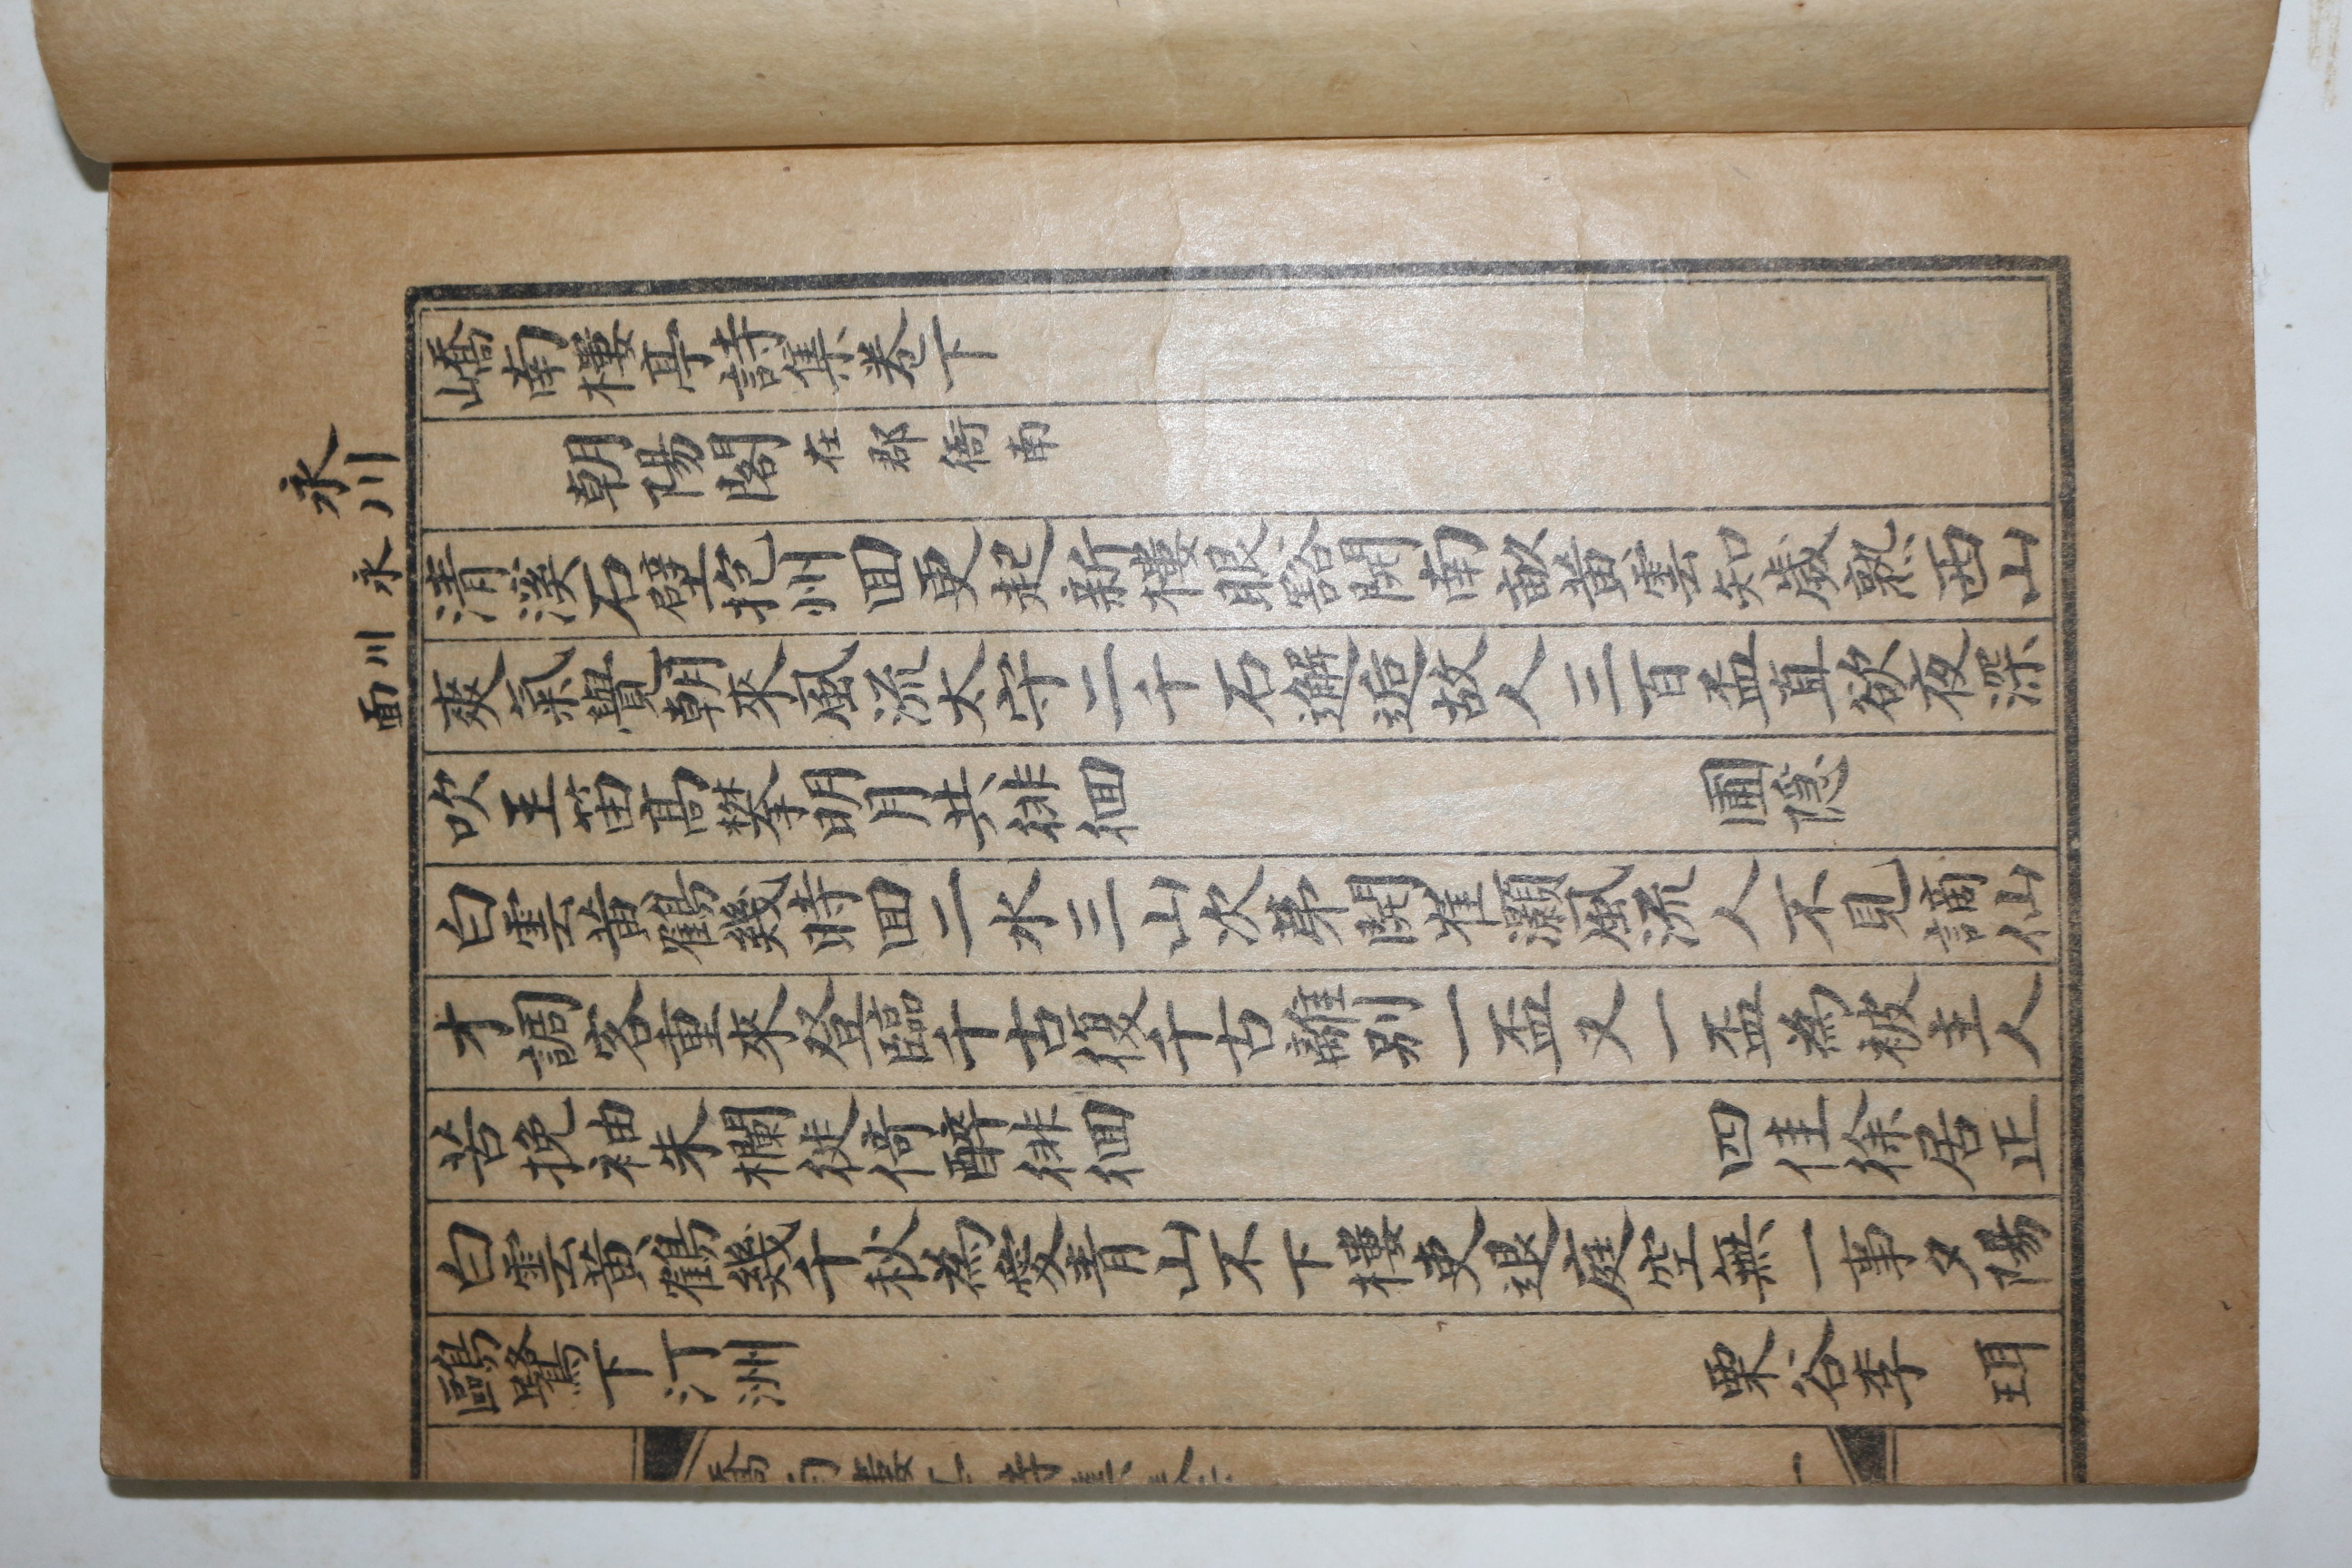 永川
永川面
嶠南樓亭詩集卷下
朝陽閣在郡衙南
清溪石壁抱州囬更起新樓眼豁開南畝黃雲知歲熟西山
爽氣覺朝來風流太守二千石邂逅故人三百盃直欲夜深
吹玉笛高攀明月共徘徊
圃隱
白雲黃鶴幾時囬二水三山次苐開崔灝風流人不見謫仙
才調客重來登臨千古復千古離別一盃又一盃為被主人
苦挽袖朱欄徙倚醉徘徊
四佳徐居正
白雲黃鶴幾千秋為愛青山不下樓吏退庭空無一事夕陽
鷗鷺下汀洲
栗谷李珥